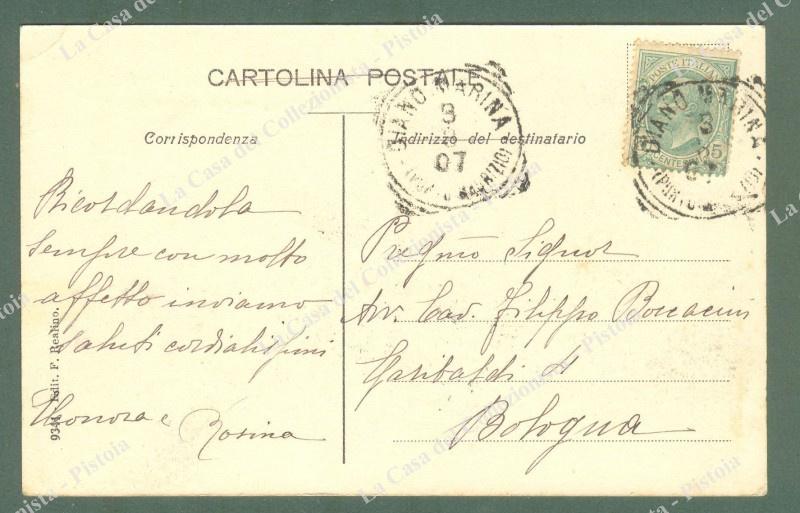 CARTOLINA POSTALE
Corrispondenza
Indirizzo del destinatario
DIANO MARINA
3
07
(PORTO MAURIZIO)
POSTE ITALIANE
CENTESIMI 5
DIANO MARINA
3
07
(PORTO MAURIZIO)
Ricordandola
sempre con molto
affetto inviamo
saluti cordialissimi
Eleonora e
Rosina
Pregmo Signor
Avv. Cav. Filippo Boccacini
Garibaldi 4
Bologna
9344 Edit. F. Realino.
La Casa del Collezionista - Pistoia